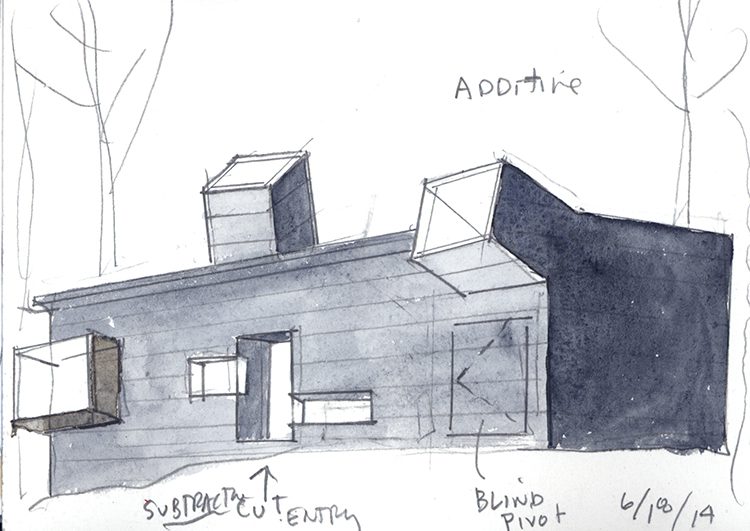 ADDitive
SUBTRACTIVE CUT ENTRY
BLIND
PIVOT
6/18/14